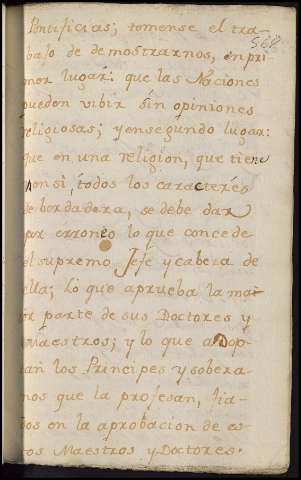 Pontificias; tomense el tra-
bajo de demostrarnos, en pri
mer lugar: que las Naciones
pueden vibir sin opiniones
religiosas; y en segundo lugar:
que en una religion, que tiene
con si todos los caractéres
de berdadera, se debe dar
por erroneo lo que concede
el supremo Jefe y cabeza de
ella; Lo que aprueba la ma-
or parte de sus Doctores y
maestros; y lo que adop-
tan los Principes y sobera-
nos que la profesan, fia-
dos en la aprobacion de es-
tos Maestros y Doctores.